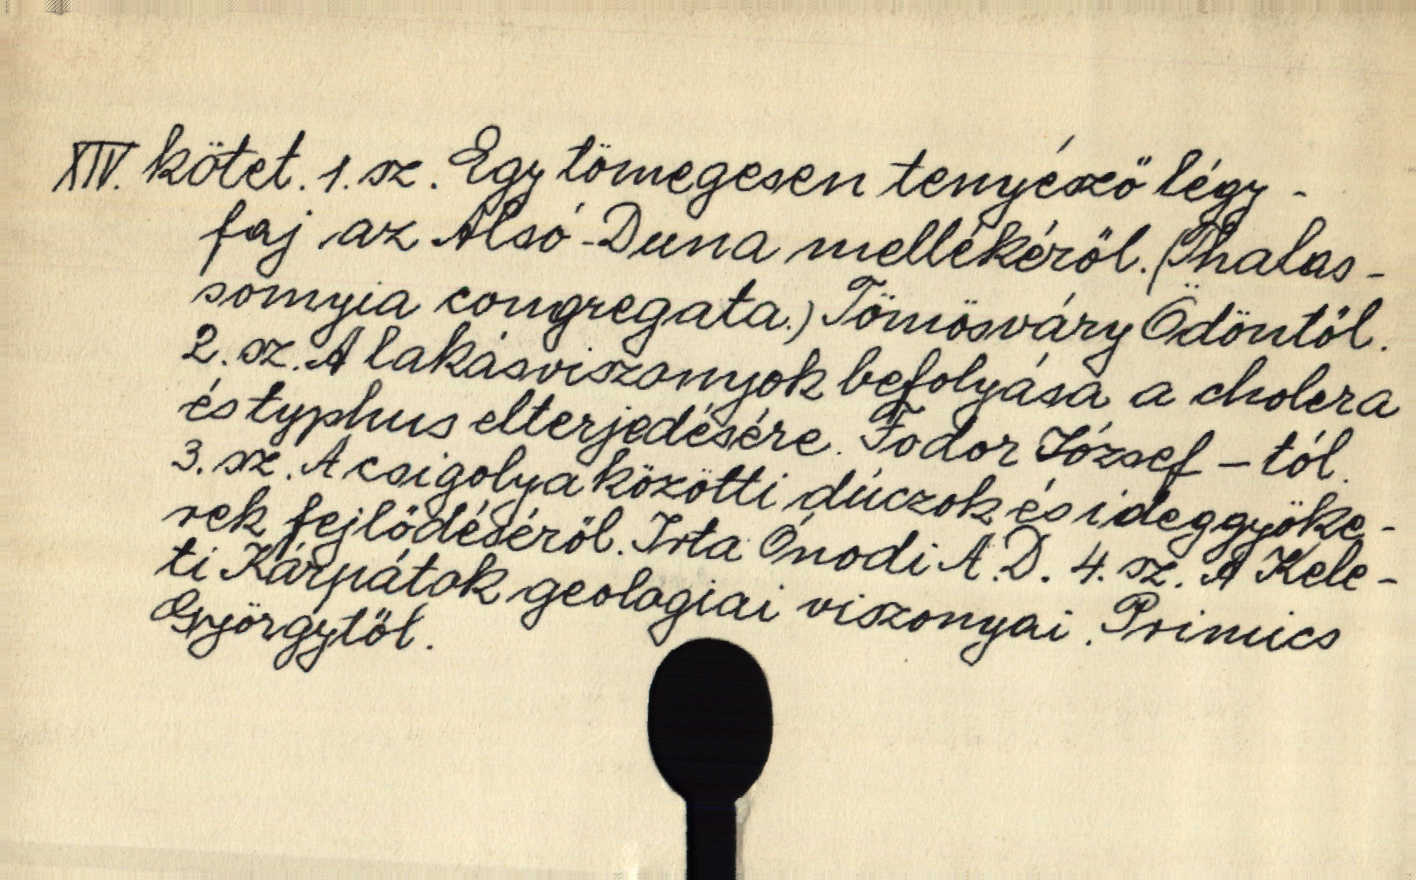 XIV. kötet. 1. sz. Egy tömegesen tenyésző légy-
faj az Alsó-Duna mellékéről. (Thalas-
somyia congregata.) Tömösváry Ödöntől.
2. sz. A lakásviszonyok befolyása a cholera
és typhus elterjedésére. Fodor József-tól.
3. sz. A csigolyaközötti dúczok és ideggyöke-
rek fejlődéséről. Irta Ónodi A. D. 4. sz. A Kele-
ti Kárpátok geologiai viszonyai. Primics
Györgytől.